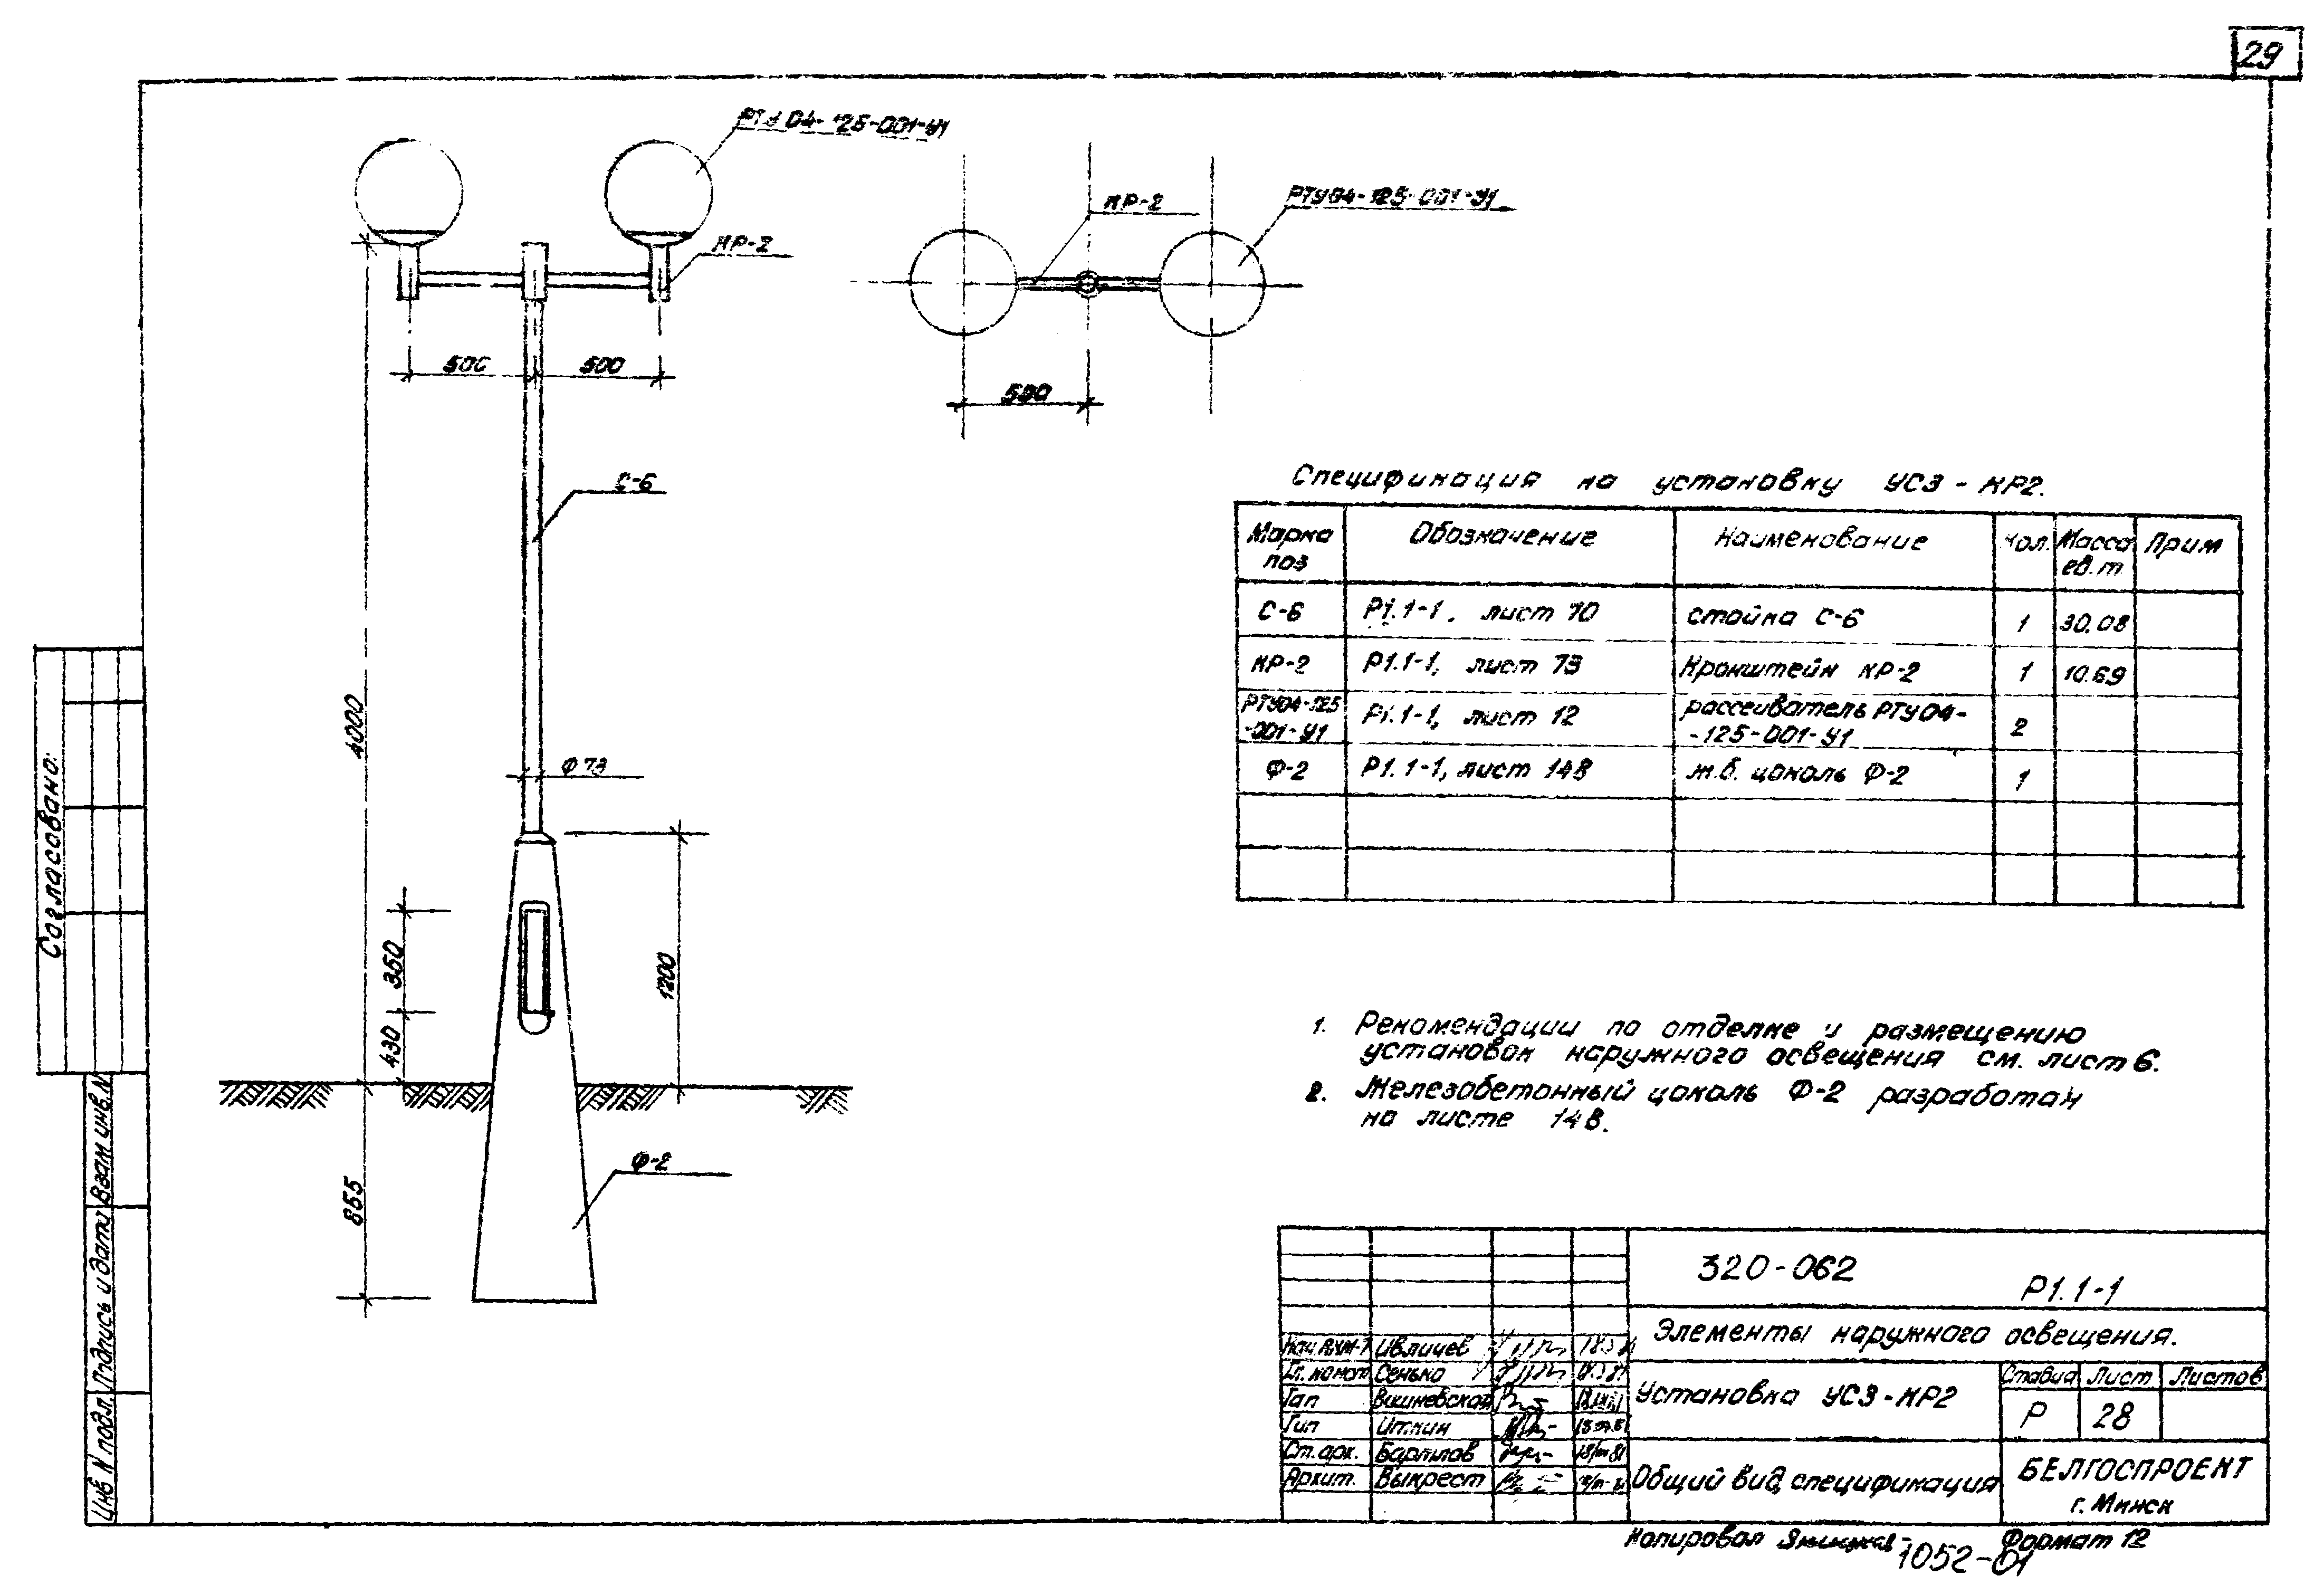 29
РТУ04-125-001-У1
КР-2
500 500
С-6
4000
Ф73
350
430
1200
855
Ф-2
КР-2
РТУ04-125-001-У1
500
Спецификация на установку УС3-КР2.
Марка поз Обозначение Наименование Кол. Масса ед. т Прим
С-6 Р1.1-1, лист 70 стойка С-6 1 30.08
КР-2 Р1.1-1, лист 73 Кронштейн КР-2 1 10.69
РТУ04-125 -001-У1 Р1.1-1, лист 12 рассеиватель РТУ04- -125-001-У1 2
Ф-2 Р1.1-1, лист 148 ж.б. цоколь Ф-2 1
1. Рекомендации по отделке и размещению
установок наружного освещения см. лист 6.
2. Железобетонный цоколь Ф-2 разработан
на листе 148.
Согласовано:
Инв N подл. Подпись и дата Взам инв. N
320-062
Р1.1-1
Элементы наружного освещения.
Ивличев
Гл. конст Сенько
Гап Вишневская
Гип Иткин
Ст. арх.
Архит. Выкрест
Установка УС3-КР2
Стадия Лист Листов
Р 28
Общий вид, спецификация
БЕЛГОСПРОЕКТ
г. Минск
Копировал
Формат 12
1052-01